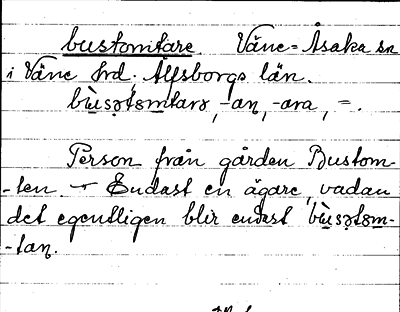 bustomtare. Väne-Åsaka sn
i Väne hrd. Älfsborgs län.
bùsətomtarə, -aṇ, -ara, =.
Person från gården Bustom-
-ten. Endast en ägare, vadan
det egentligen blir endast bùsətom-
-taṇ.